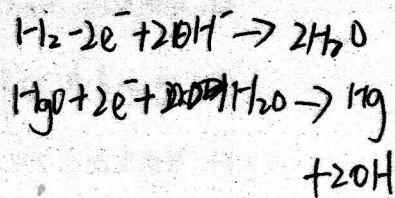 H₂-2e⁻+2OH⁻→2H₂O
HgO+2e⁻+H₂O→Hg
+2OH